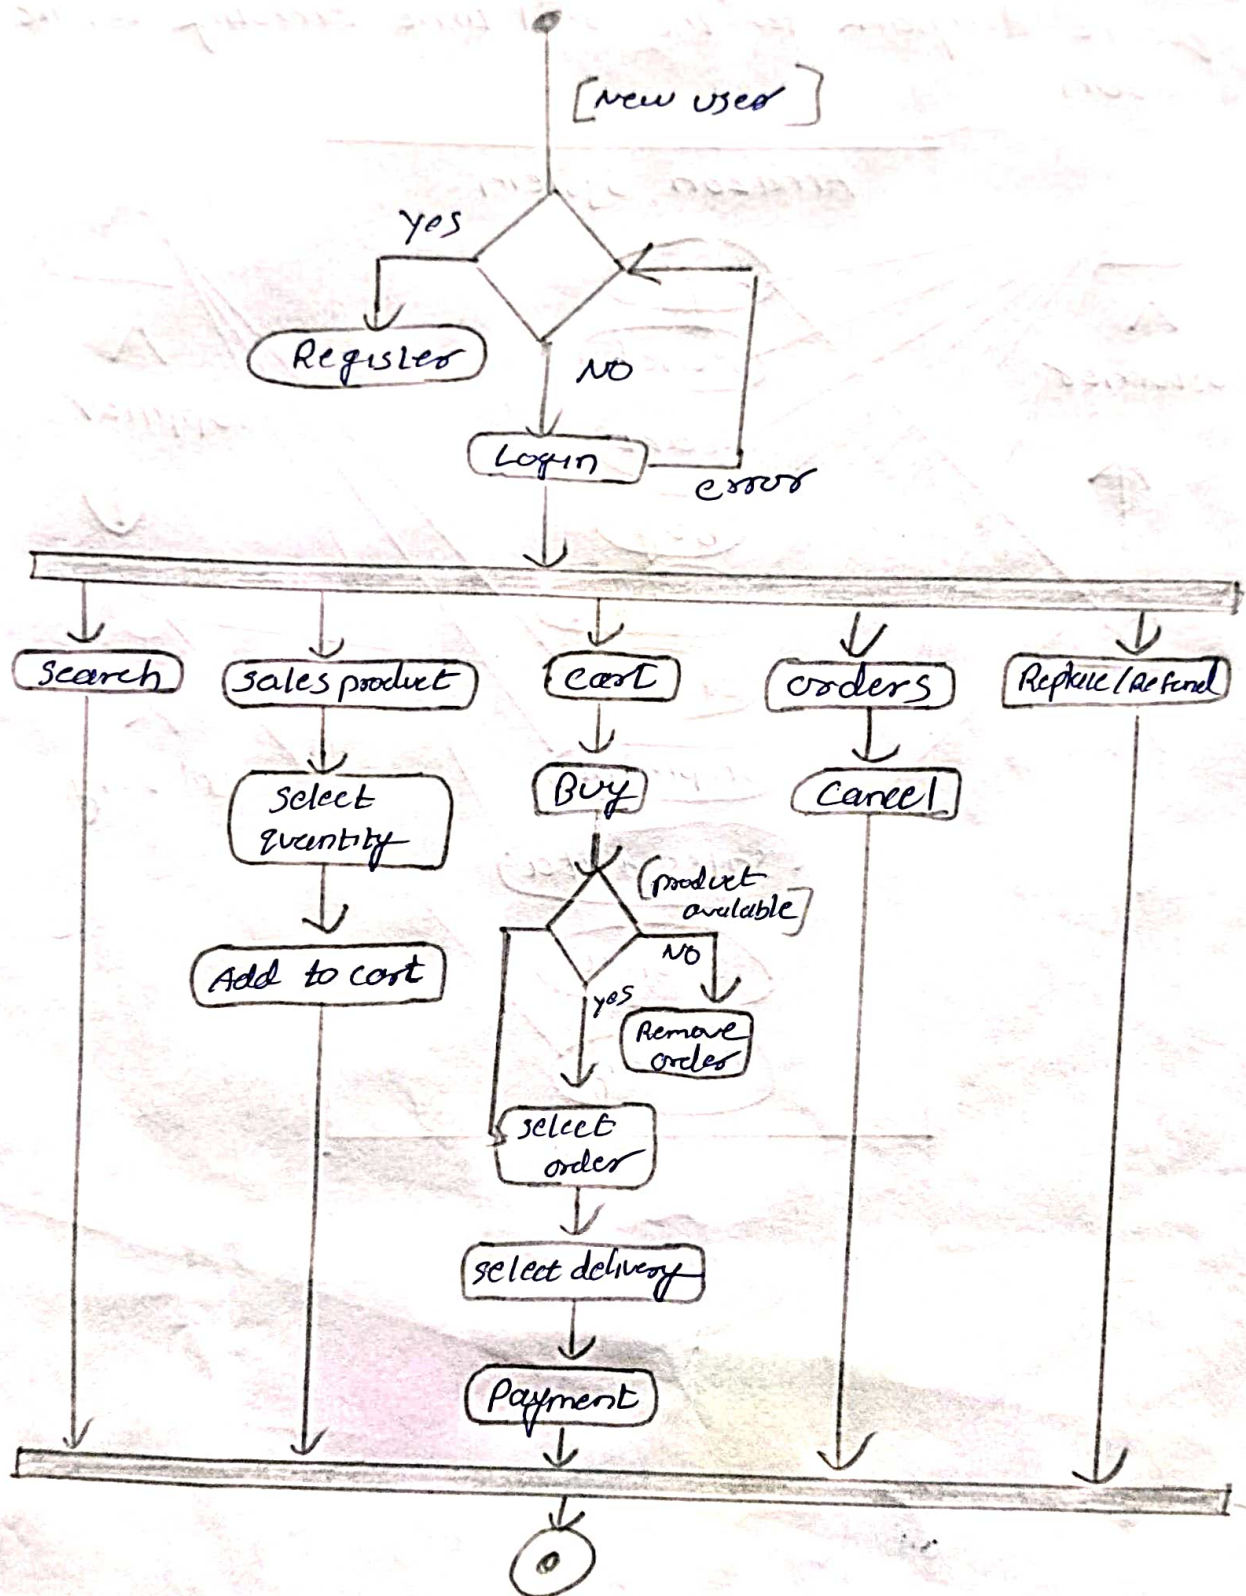 [New user]
yes
Register
NO
Login
error
search
sales product
cart
orders
Replace/Refund
select
quantity
Buy
cancel
[product
available]
NO
Add to cart
yes
Remove
order
select
order
select delivery
Payment